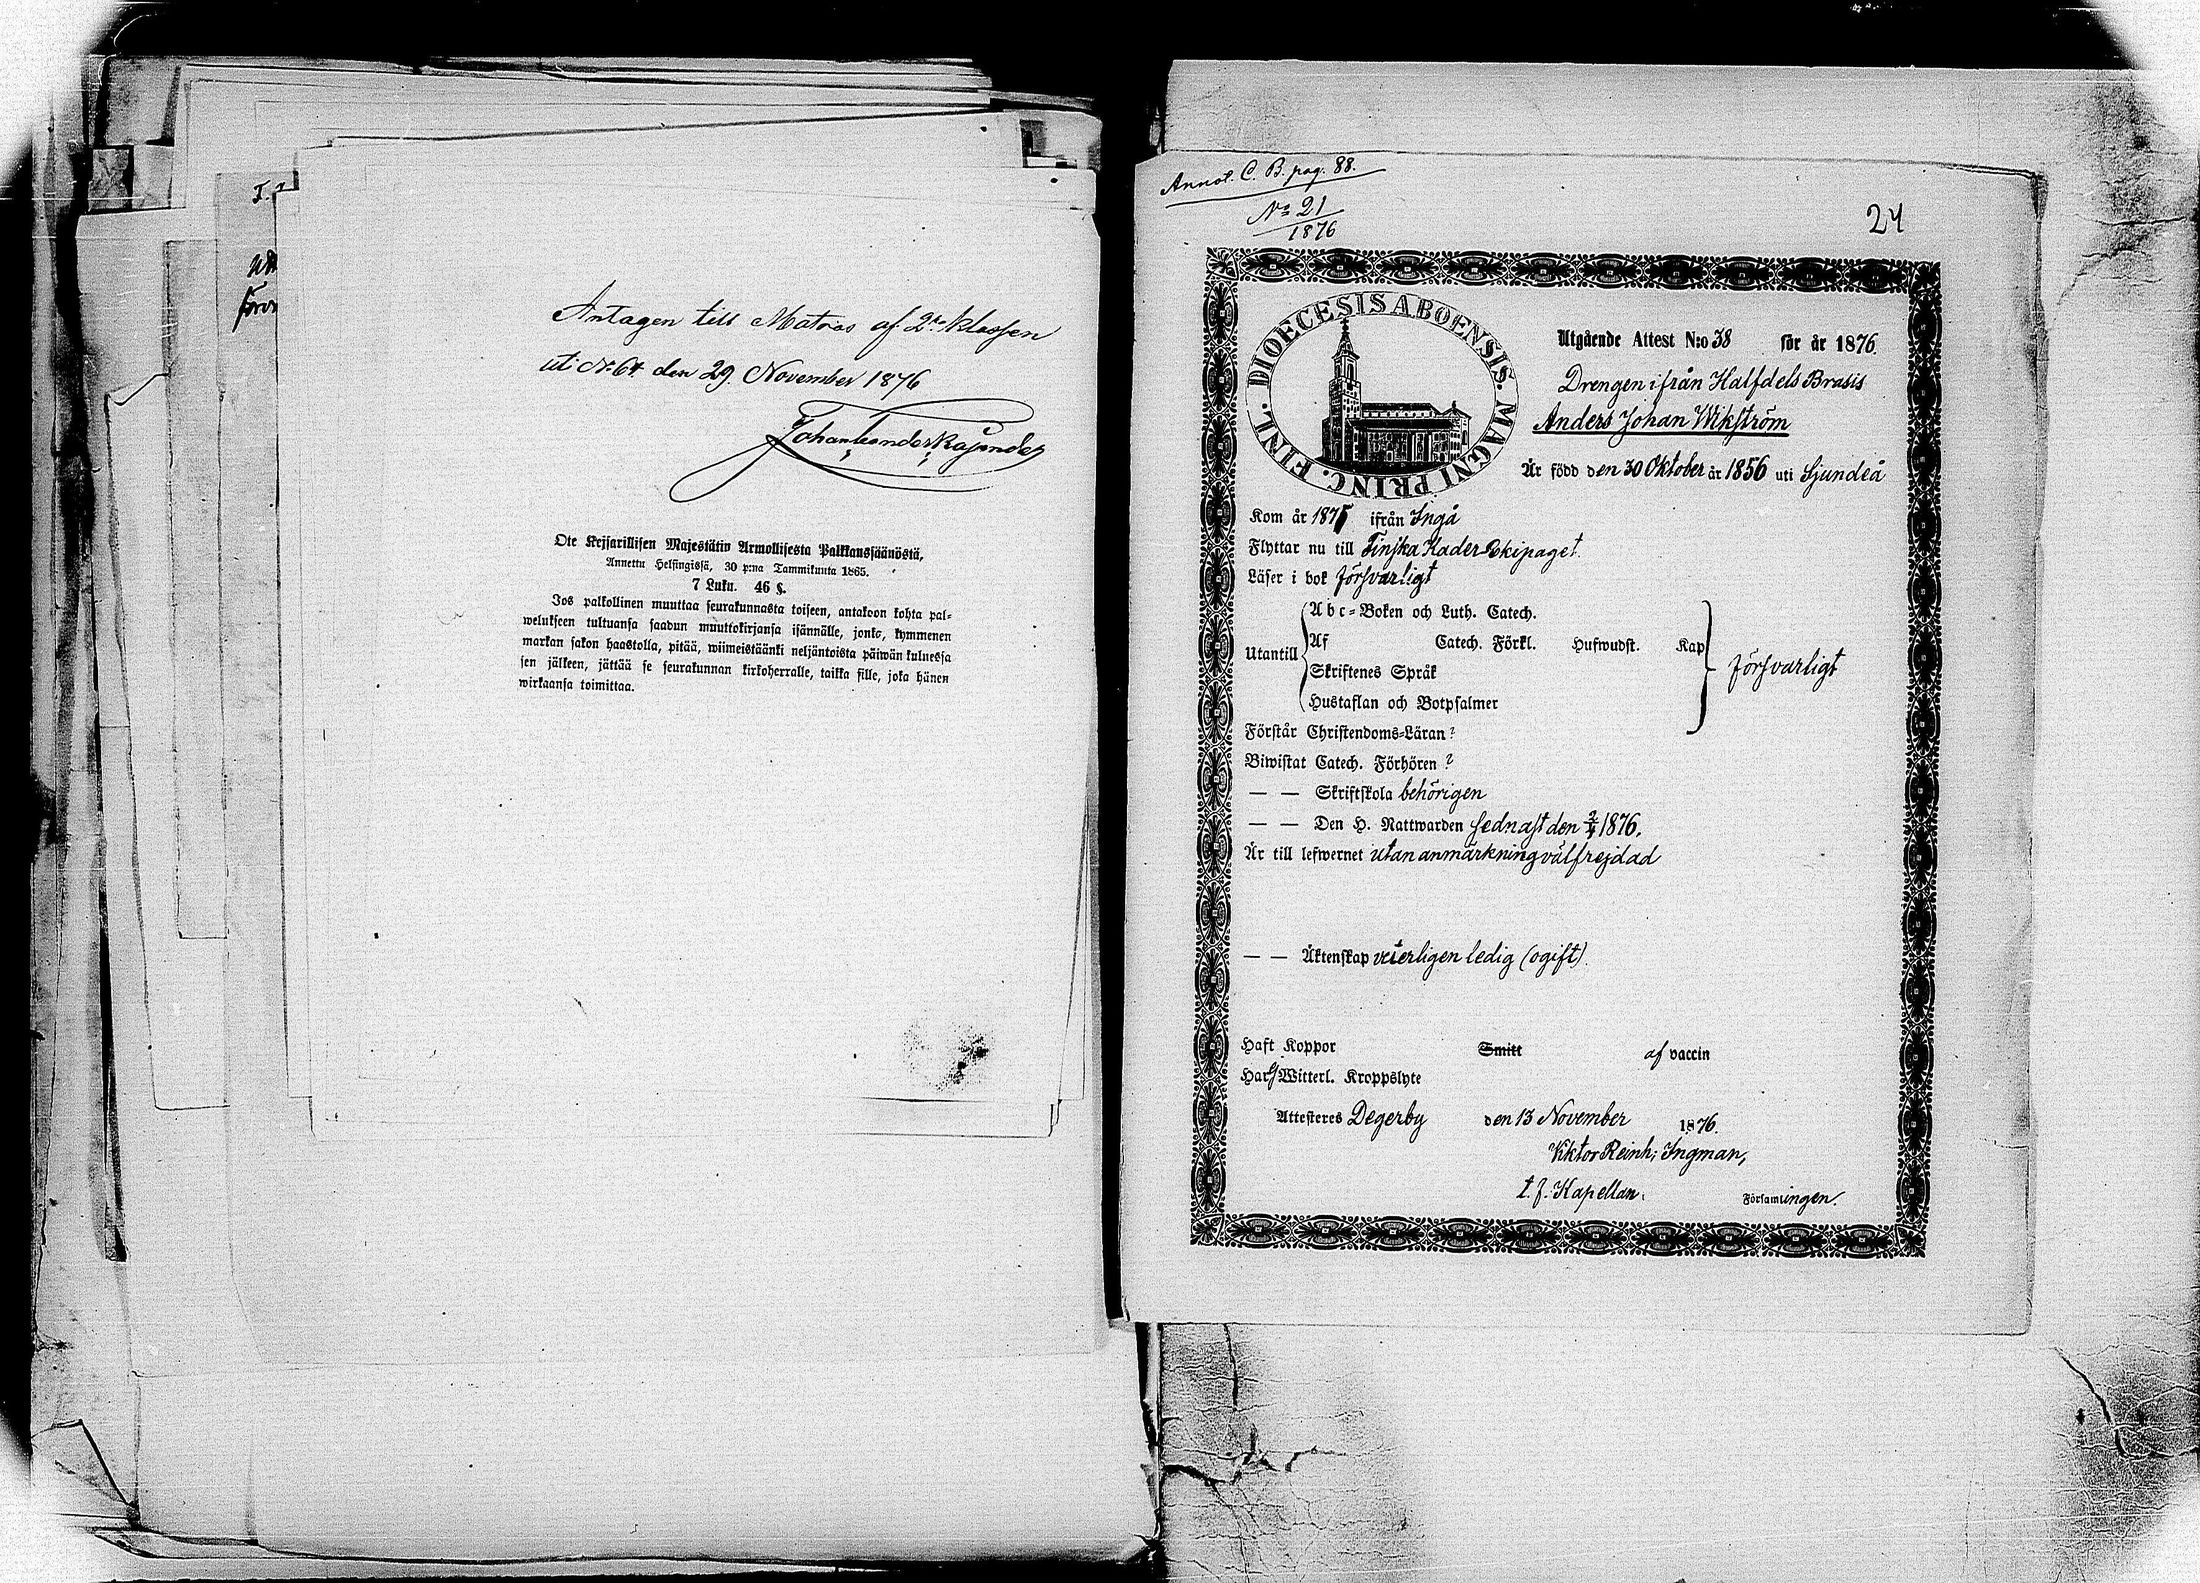 Antagen till Matros af 2:a klassen
uti No 64 den 29. November 1876
Ote Kejsarillisen Majestätin Armollisesta Palkkaussäänöstä,
Annettu Helsingissä, 30 p:nä Tammikuuta 1865.
7 Luku. 46 §.
Jos palkollinen muuttaa seurakunnasta toiseen, antakoon kohta pal-
welukseen tultuansa saadun muuttokirjansa isännälle, jonka, kymmenen
markan sakon haastolla, pitää, wiimeistäänki neljäntoista päiwän kuluessa
sen jälkeen, jättää se seurakunnan kirkoherralle, taikka sille, joka hänen
wirkaansa toimittaa.
Annot. C. B. pag. 88.
No 21
1876
24
DIOECESIS ABOENSIS. MAGNI PRINC. FINL.
Utgående Attest N:o 38 för år 1876.
Drengen ifrån Halfdels Brasis
Anders Johan Wikström
Är född den 30 Oktober år 1856 uti Sjundeå
Kom år 1875 ifrån Ingå
Flyttar nu till Finska Kader-Ekipaget.
Läser i bok försvarligt
Utantill
Abc-Boken och Luth. Catech.
Af Catech. Förkl. Hufwudst. Kap
Skriftenes Språk
Hustaflan och Botpsalmer
försvarligt
Förstår Christendoms-Läran?
Biwistat Catech. Förhören?
— — Skriftskola behörigen
— — Den H. Nattwarden sednast den 2/4 1876.
Är till lefwernet utan anmärkning välfrejdad
— — Äktenskap veterligen ledig (ogift).
Haft Koppor Smitt af vaccin
Har ej Witterl. Kroppslyte
Attesteres Degerby den 13 November 1876.
Viktor Reinh; Ingman,
t. f. Kapellan. Församlingen.